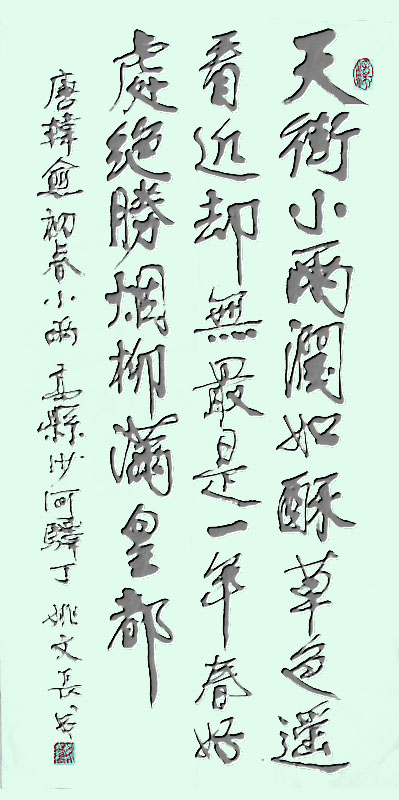 天街小雨潤如酥草色遥
看近却無最是一年春好
處絶勝烟柳滿皇都
唐韓愈初春小雨 縣沙河驛丁 姚文長书